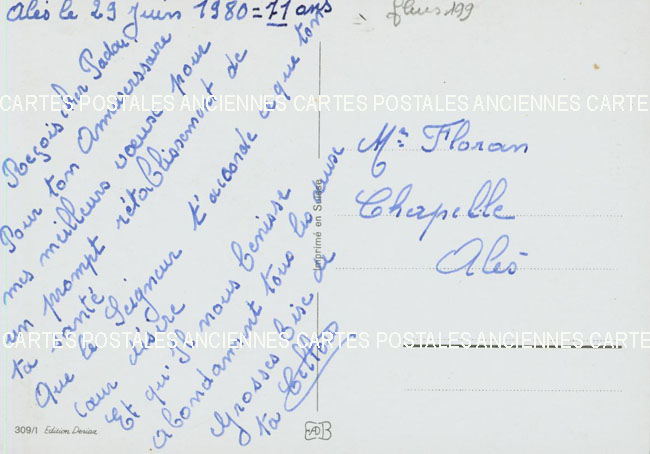 Alès le 29 Juin 1980 = 71 ans
fleurs 199
Reçois cher Padou
Pour ton Anniverssaire
mes meilleurs vœux pour
un prompt rétablissement de
ta santé
Que le Seigneur t'accorde ce que ton
cœur désire
Et qu'Il nous benisse
abondament tous les deux
Grosses bise de
ta
Mr Floran
Chapelle
Alès
CARTES POSTALES ANCIENNES CARTES POSTALES ANCIENNES CARTES
CARTES POSTALES ANCIENNES CARTES POSTALES ANCIENNES CARTES
Imprimé en Suisse
309/1 Edition Desiax